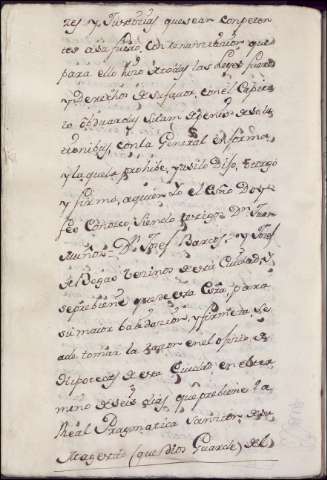 zes y Justicias que sean conpeten
tes a su fuero, con renunciacion que
para ello hizo de todas las Leyes fueros
y derechos de su favor, con el Capitu
lo Obduardus suam de penis de solu
cionibus, con la General en forma,
y la que la prohibe, y asi lo dijo, otorgó
y firmó, a quien yo el Essno Doy
feé Conozco, siendo testigos Dn Juan
Muñoz, Dn Josef Barco y Josef
de Vegas vecinos de esta Ciudad, y
se prebiene que de esta Essra, para
su maior balidacion, y firmeza se
ade tomar la razon en el oficio de
Hipotecas de esta Ciudad en el ter
mino de seis dias, que prebiene la
Real Pragmatica Sancion de su
Magestad (que Dios Guarde) del